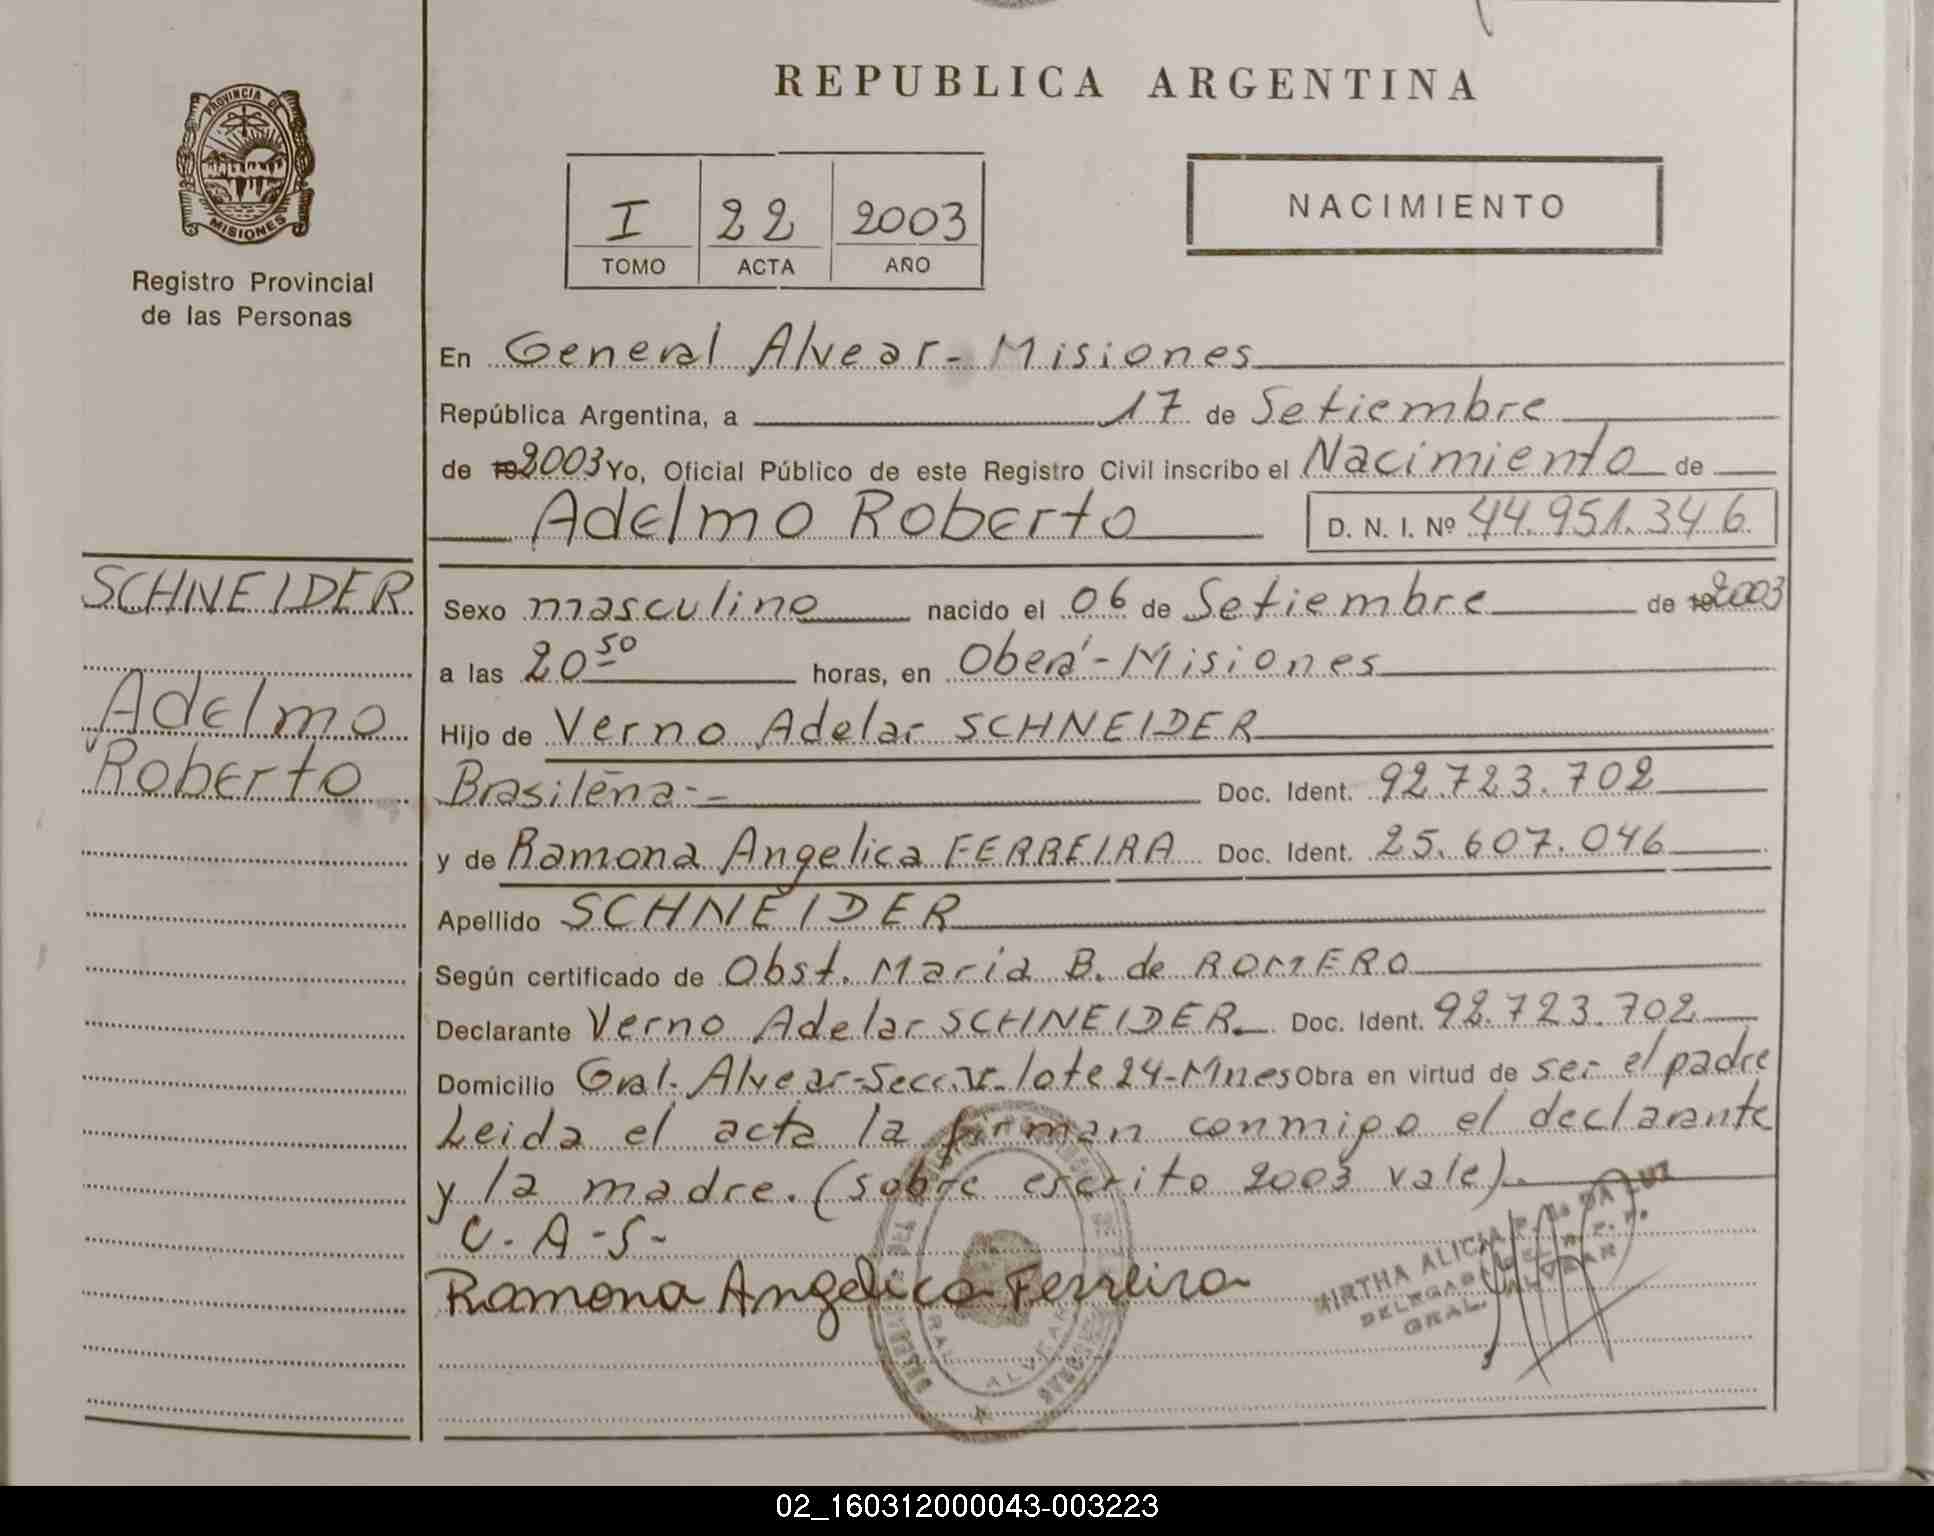 REPUBLICA ARGENTINA
PROVINCIA DE
MISIONES
Registro Provincial
de las Personas
I 22 2003
TOMO ACTA AÑO
NACIMIENTO
En General Alvear - Misiones
República Argentina, a 17 de Setiembre
de 19 2003 Yo, Oficial Público de este Registro Civil inscribo el Nacimiento de
Adelmo Roberto D. N. I. Nº 44.951.346
SCHNEIDER
Adelmo
Roberto
Sexo masculino nacido el 06 de Setiembre de 19 2003
a las 20 50 horas, en Oberá - Misiones
Hijo de Verno Adelar SCHNEIDER
Brasilēna - - Doc. Ident. 92.723.702
y de Ramona Angelica FERREIRA Doc. Ident. 25.607.046
Apellido SCHNEIDER
Según certificado de Obst. Maria B. de ROMERO
Declarante Verno Adelar SCHNEIDER Doc. Ident. 92.723.702
Domicilio Gral. Alvear - Secc. V - lote 24 - Mnes Obra en virtud de ser el padre
Leida el acta la firman conmigo el declarante
y la madre. (sobre escrito 2003 vale).
V. A - S -
Ramona Angelica Ferreira
MIRTHA ALICIA DA LUZ
DELEGADA DEL R. P. P.
GRAL. ALVEAR
GRAL. ALVEAR
02_160312000043-003223